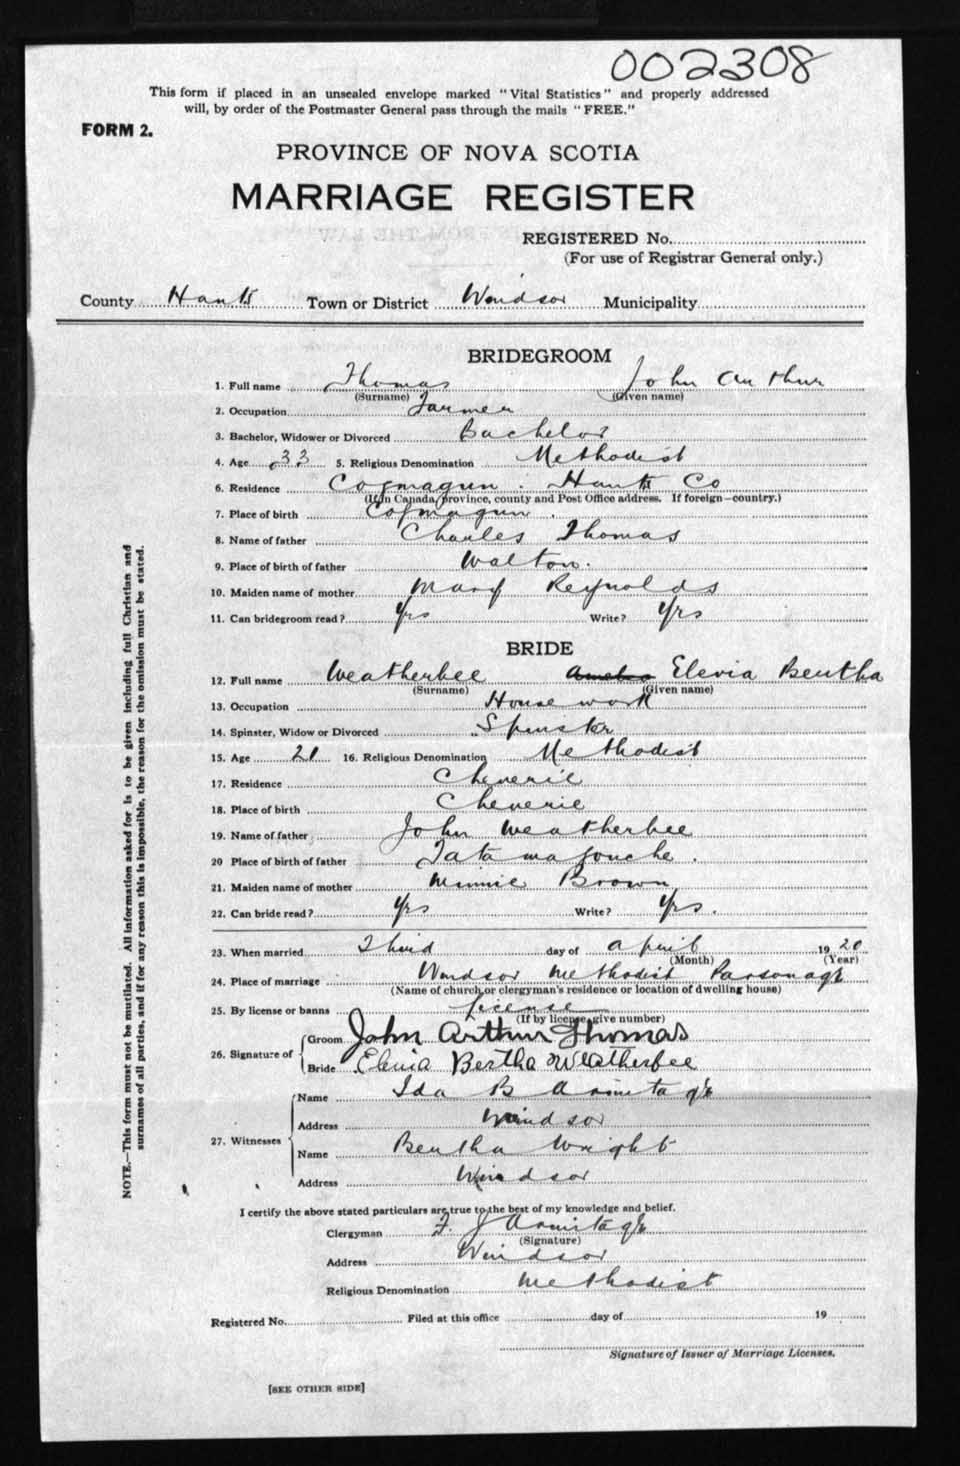 002308
This form if placed in an unsealed envelope marked "Vital Statistics" and properly addressed
will, by order of the Postmaster General pass through the mails "FREE."
FORM 2.
PROVINCE OF NOVA SCOTIA
MARRIAGE REGISTER
REGISTERED No.
(For use of Registrar General only.)
County Hants Town or District Windsor Municipality
BRIDEGROOM
1. Full name Thomas John Arthur
(Surname) (Given name)
2. Occupation Farmer
3. Bachelor, Widower or Divorced Bachelor
4. Age 33 5. Religious Denomination Methodist
6. Residence Cogmagun. Hants Co
(If in Canada, province, county and Post Office address. If foreign—country.)
7. Place of birth Cogmagun.
8. Name of father Charles Thomas
9. Place of birth of father Walton.
10. Maiden name of mother Mary Reynolds
11. Can bridegroom read? Yes Write? Yes
BRIDE
12. Full name Weatherbee Elevia Bertha
(Surname) (Given name)
13. Occupation House work
14. Spinster, Widow or Divorced Spinster
15. Age 21 16. Religious Denomination Methodist
17. Residence Cheverie
18. Place of birth Cheverie
19. Name of father John Weatherbee
20 Place of birth of father Tatamagouche.
21. Maiden name of mother Minnie Brown
22. Can bride read? Yes Write? Yes.
23. When married Third day of April 1920
(Month) (Year)
24. Place of marriage Windsor Methodist Parsonage
(Name of church, or clergyman's residence or location of dwelling house)
25. By license or banns License
(If by license, give number)
26. Signature of Groom John Arthur Thomas
Bride Elevia Bertha Weatherbee
27. Witnesses Name Ida B Armitage
Address Windsor
Name Bertha Wright
Address Windsor
I certify the above stated particulars are true to the best of my knowledge and belief.
Clergyman F. J Armitage
(Signature)
Address Windsor
Religious Denomination Methodist
Registered No. Filed at this office day of 19
Signature of Issuer of Marriage Licenses.
[SEE OTHER SIDE]
NOTE.—This form must not be mutilated. All information asked for is to be given including full Christian and
surnames of all parties, and if for any reason this is impossible, the reason for the omission must be stated.